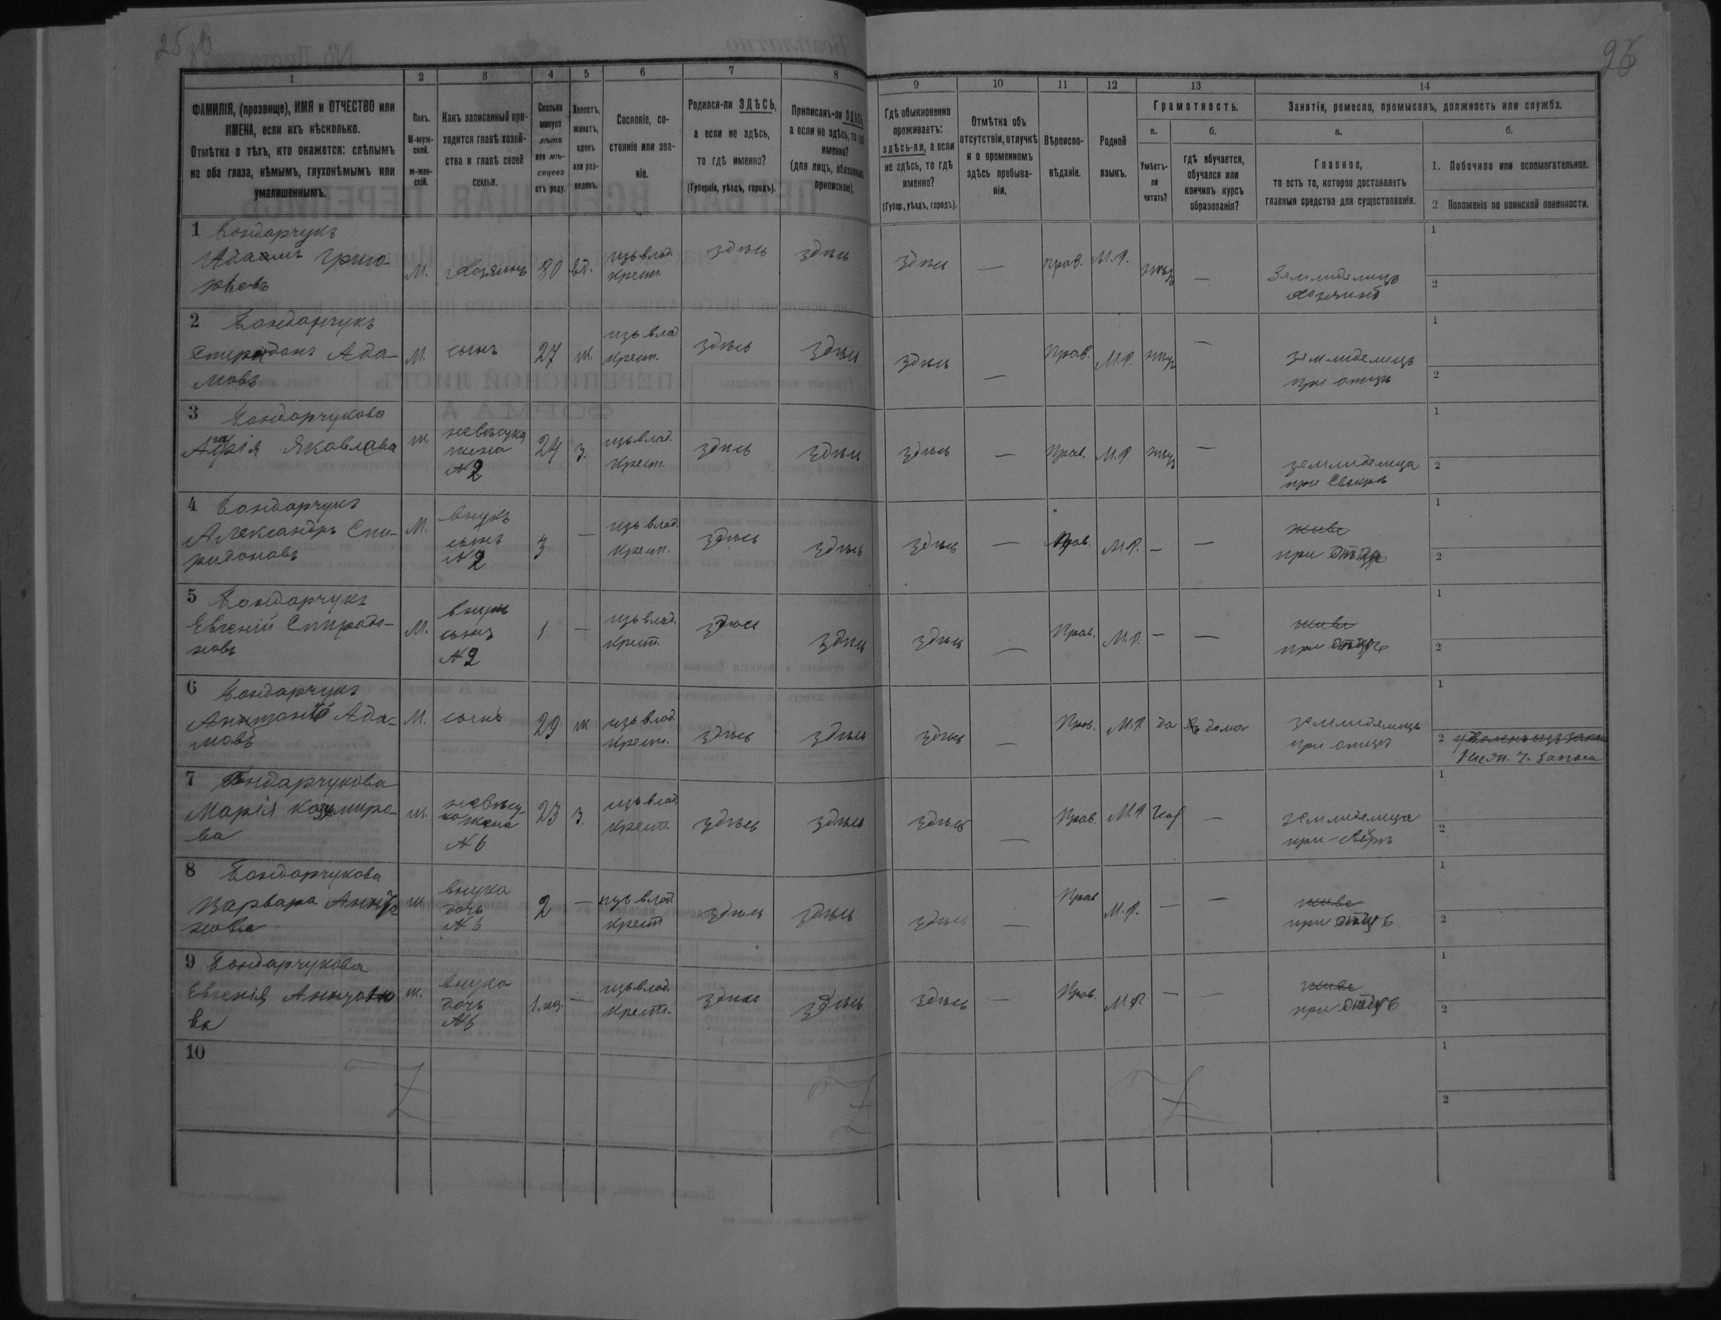 25 об
26
1
2
3
4
5
6
7
8
9
10
11
12
13
14
ФАМИЛІЯ, (прозвище), ИМЯ и ОТЧЕСТВО или
ИМЕНА, если ихъ нѣсколько.
Отмѣтка о тѣхъ, кто окажется: слѣпымъ
на оба глаза, нѣмымъ, глухонѣмымъ или
умалишеннымъ.
Полъ.
М-муж-
ской.
ж-жен-
скій.
Какъ записанный при-
ходится главѣ хозяй-
ства и главѣ своей
семьи.
Сколько
минуло
лѣтъ
или мѣ-
сяцевъ
отъ роду.
Холостъ,
женатъ,
вдовъ
или раз-
веденъ.
Сословіе, со-
стояніе или зва-
ніе.
Родился-ли ЗДѢСЬ,
а если не здѣсь,
то гдѣ именно?
(Губернія, уѣздъ, городъ).
Приписанъ-ли ЗДѢСЬ,
а если не здѣсь, то гдѣ
именно?
(для лицъ, обязанныхъ
припискою).
Гдѣ обыкновенно
проживаетъ:
здѣсь-ли, а если
не здѣсь, то гдѣ
именно?
(Губер., уѣздъ, городъ).
Отмѣтка объ
отсутствіи, отлучкѣ
и о временномъ
здѣсь пребыва-
ніи.
Вѣроиспо-
вѣданіе.
Родной
языкъ.
Грамотность.
а.
Умѣетъ-
ли
читать?
б.
гдѣ обучается,
обучался или
кончилъ курсъ
образованія?
Занятіе, ремесло, промыселъ, должность или служба.
а.
Главное,
то есть то, которое доставляетъ
главныя средства для существованія.
б.
1. Побочное или вспомогательное.
2 Положеніе по воинской повинности.
1 Бондарчукъ
Адамъ Григо-
рьевъ
М.
Хозяинъ
80
вд.
изъ влад.
крест.
здѣсь
здѣсь
здѣсь
—
прав.
М.Р.
—
Земледелецъ
Хозяинъ
1
2
2 Бондарчукъ
Спиридонъ Ада-
мовъ
М.
сынъ
27
ж.
изъ влад
крест.
здѣсь
здѣсь
здѣсь
—
Прав.
М.Р.
—
земледелецъ
при отцѣ
1
2
3 Бондарчукова
Яковлева
ж.
невѣстка
жена
№2
24
з.
изъ влад.
крест.
здѣсь
здѣсь
здѣсь
—
Прав.
М.Р.
—
земледелица
при
1
2
4 Бондарчукъ
Александръ Спи-
ридоновъ
М.
внукъ
сынъ
№2
3
—
изъ влад.
крест.
здѣсь
здѣсь
здѣсь
—
Прав.
М.Р.
—
—
при отцѣ
1
2
5 Бондарчукъ
Евгеній Спиридо-
новъ
М.
внукъ
сынъ
№2
1
—
изъ влад.
крест.
здѣсь
здѣсь
здѣсь
—
Прав.
М.Р.
—
—
при отцѣ
1
2
6 Бондарчукъ
Ада-
мовъ
М.
сынъ
29
ж
изъ влад.
крест.
здѣсь
здѣсь
здѣсь
—
Прав.
М.Р.
да
дома
земледелецъ
при отцѣ
1
2
запаса
7 Бондарчукова
Марія Казимиро-
ва
ж.
невѣст-
ка жена
№6
23
з.
изъ влад
крест.
здѣсь
здѣсь
здѣсь
—
Прав.
М.Р
—
земледелица
при
1
2
8 Бондарчукова
Варвара
нова
ж.
внука
дочь
2
—
изъ влад
крест
здѣсь
здѣсь
здѣсь
—
Прав
М.Р.
—
—
при отцѣ
1
2
9 Бондарчукова
Евгенія
ва
ж.
внука
дочь
№6
1 мц.
—
изъ влад
крест.
здѣсь
здѣсь
здѣсь
—
Прав.
М.Р
—
—
при отцѣ
1
2
10
1
2